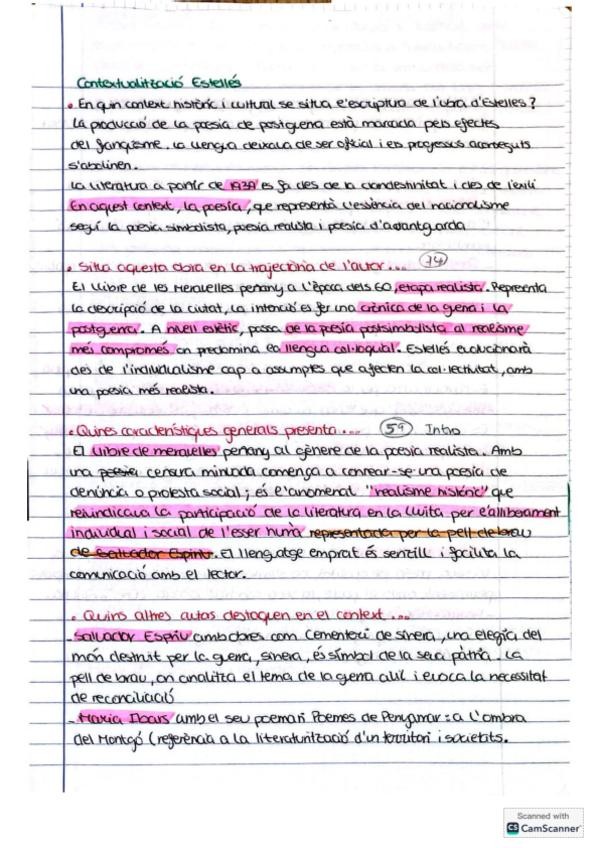 Contextualització Estellés
• En quin context històric i cultural se situa l'escriptura de l'obra d'Estellés?
La producció de la poesia de postguerra està marcada pels efectes
del franquisme. La llengua deixava de ser oficial i els progressos aconseguits
s'abolinen.
La literatura a partir de 1939 es fa des de la clandestinitat i des de l'exili
En aquest context, la poesia, que representà l'essència del nacionalisme
seguí la poesia simbolista, poesia realista i poesia d'avantgarda
• Situa aquesta obra en la trajectòria de l'autor... 74
El Llibre de les Meravelles pertany a l'època dels 60, etapa realista. Representa
la descripció de la ciutat, la intenció és fer una crònica de la guerra i la
postguerra. A nivell estètic, passa de la poesia postsimbolista al realisme
més compromés on predomina la llengua col·loquial. Estellés evolucionarà
des de l'individualisme cap a assumptes que afecten la col·lectivitat, amb
una poesia més realista.
• Quines característiques generals presenta... 59 Intro
El Llibre de meravelles pertany al gènere de la poesia realista. Amb
una poesia censura minvada comença a conrear-se una poesia de
denúncia o protesta social; és l'anomenat "realisme històric" que
reivindicava la participació de la literatura en la lluita per l'alliberament
individual i social de l'ésser humà representada per la pell de brau
de Salvador Espriu. El llengatge emprat és senzill i facilita la
comunicació amb el lector.
• Quins altres autors destaquen en el context...
- Salvador Espriu amb obres com Cementeri de sinera, una elegia del
món destruit per la guerra, sinera, és símbol de la seua pàtria. La
pell de brau, on analitza el tema de la guerra civil i evoca la necessitat
de reconciliació
- Maria Ibars amb el seu poemari Poemes de Penyamar: a l'ombra
del Montgó (referència a la literaturització d'un territori i societats.
Scanned with
CS CamScanner